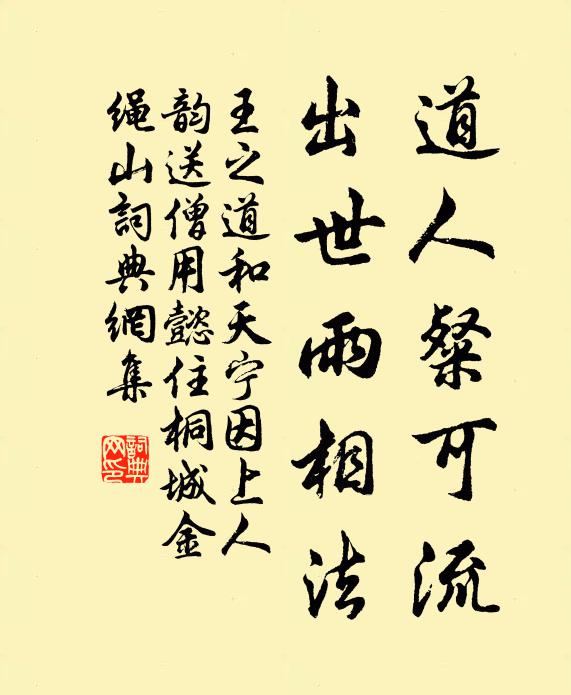 道人粲可流
出世兩相法
王之道和天宁因上人
韵送僧用懿住桐城金
绳山詞典網集
詞典网印